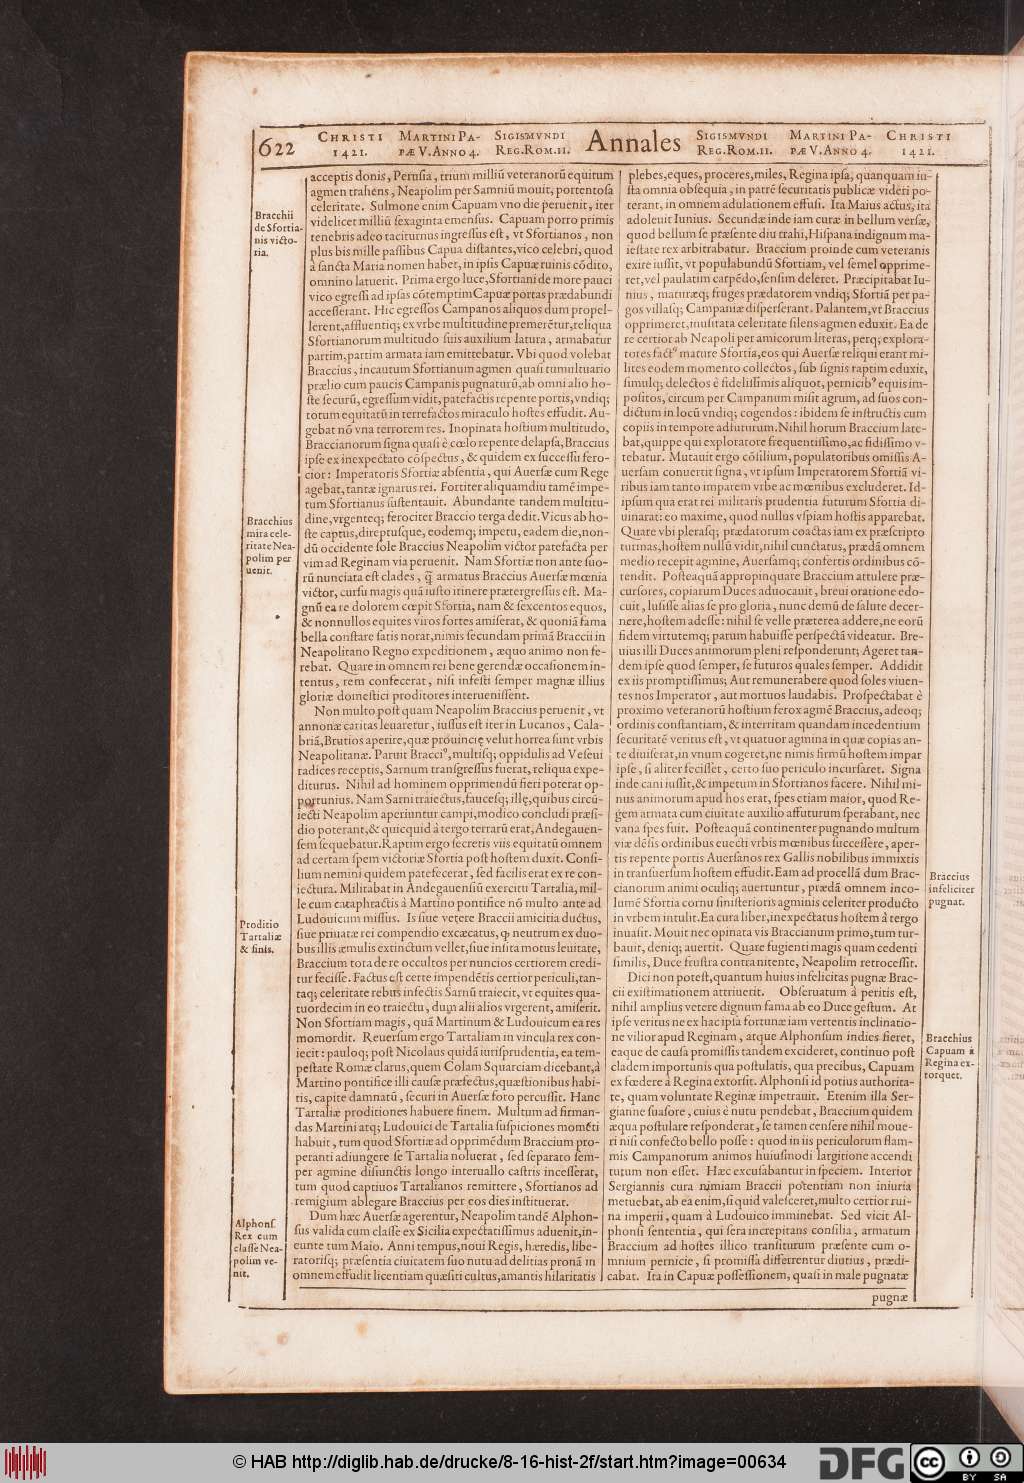 622 CHRISTI 1421. MARTINI PAPÆ V. ANNO 4. SIGISMVNDI REG. ROM. 11. Annales SIGISMVNDI REG. ROM. 11. MARTINI PAPÆ V. ANNO 4. CHRISTI 1421.
Bracchii
de Sfortia-
nis victo-
ria.
Bracchius
mira cele-
ritate Nea-
polim per
uenit.
Proditio
Tartaliæ
& finis.
Alphonſ.
Rex cum
claſſe Nea-
polim ve-
nit.
acceptis donis, Peruſia, trium milliũ veteranorũ equitum
agmen trahens, Neapolim per Samniũ mouit, portentoſa
celeritate. Sulmone enim Capuam vno die peruenit, iter
videlicet milliũ ſexaginta emenſus. Capuam porro primis
tenebris adeo taciturnus ingreſſus eſt, vt Sfortianos, non
plus bis mille paſſibus Capua diſtantes, vico celebri, quod
à ſancta Maria nomen habet, in ipſis Capuæ ruinis cõdito,
omnino latuerit. Prima ergo luce, Sfortiani de more pauci
vico egreſſi ad ipſas cõtemptim Capuæ portas prædabundi
acceſſerant. Hic egreſſos Campanos aliquos dum propel-
lerent, affluentiq; ex vrbe multitudine premerẽtur, reliqua
Sfortianorum multitudo ſuis auxilium latura, armabatur
partim, partim armata iam emittebatur. Vbi quod volebat
Braccius, incautum Sfortianum agmen quaſi tumultuario
prælio cum paucis Campanis pugnaturũ, ab omni alio ho-
ſte ſecurũ, egreſſum vidit, patefactis repente portis, vndiq;
totum equitatũ in terrefactos miraculo hoſtes effudit. Au-
gebat nõ vna terrorem res. Inopinata hoſtium multitudo,
Braccianorum ſigna quaſi è cœlo repente delapſa, Braccius
ipſe ex inexpectato cõſpectus, & quidem ex ſucceſſu fero-
cior: Imperatoris Sfortiæ abſentia, qui Auerſæ cum Rege
agebat, tantæ ignarus rei. Fortiter aliquamdiu tamẽ impe-
tum Sfortianus ſuſtentauit. Abundante tandem multitu-
dine, vrgenteq; ferociter Braccio terga dedit. Vicus ab ho-
ſte captus, direptuſque, eodemq; impetu, eadem die, non-
dũ occidente ſole Braccius Neapolim victor patefacta per
vim ad Reginam via peruenit. Nam Sfortiæ non ante ſuo-
rũ nunciata eſt clades, q̃ armatus Braccius Auerſæ mœnia
victor, curſu magis quã iuſto itinere prætergreſſus eſt. Ma-
gnũ ea re dolorem cœpit Sfortia, nam & ſexcentos equos,
& nonnullos equites viros fortes amiſerat, & quoniã fama
bella conſtare ſatis norat, nimis ſecundam primã Braccii in
Neapolitano Regno expeditionem, æquo animo non fe-
rebat. Quare in omnem rei bene gerendæ occaſionem in-
tentus, rem confecerat, niſi infeſti ſemper magnæ illius
gloriæ domeſtici proditores interueniſſent.
Non multo poſt quam Neapolim Braccius peruenit, vt
annonæ caritas leuaretur, iuſſus eſt iter in Lucanos, Cala-
briã, Brutios aperire, quæ prouincię velut horrea ſunt vrbis
Neapolitanæ. Paruit Bracciꝰ, multiſq; oppidulis ad Veſeui
radices receptis, Sarnum tranſgreſſus fuerat, reliqua expe-
diturus. Nihil ad hominem opprimendũ fieri poterat op-
portunius. Nam Sarni traiectus, fauceſq; illę, quibus circũ-
iecti Neapolim aperiuntur campi, modico concludi præſi-
dio poterant, & quicquid à tergo terrarũ erat, Andegauen-
ſem ſequebatur. Raptim ergo ſecretis viis equitatũ omnem
ad certam ſpem victoriæ Sfortia poſt hoſtem duxit. Conſi-
lium nemini quidem patefecerat, ſed facilis erat ex re con-
iectura. Militabat in Andegauenſiũ exercitu Tartalia, mil-
le cum cataphractis à Martino pontifice nõ multo ante ad
Ludouicum miſſus. Is ſiue vetere Braccii amicitia ductus,
ſiue priuatæ rei compendio excæcatus, ꝙ neutrum ex duo-
bus illis æmulis extinctum vellet, ſiue inſita motus leuitate,
Braccium tota de re occultos per nuncios certiorem credi-
tur feciſſe. Factus eſt certe impendẽtis certior periculi, tan-
taq; celeritate rebus infectis Sarnũ traiecit, vt equites qua-
tuordecim in eo traiectu, dum alii alios vrgerent, amiſerit.
Non Sfortiam magis, quã Martinum & Ludouicum ea res
momordit. Reuerſum ergo Tartaliam in vincula rex con-
iecit: pauloq; poſt Nicolaus quidã iuriſprudentia, ea tem-
peſtate Romæ clarus, quem Colam Squarciam dicebant, à
Martino pontifice illi cauſæ præfectus, quæſtionibus habi-
tis, capite damnatũ, ſecuri in Auerſæ foro percuſſit. Hanc
Tartaliæ proditiones habuere finem. Multum ad firman-
das Martini atq; Ludouici de Tartalia ſuſpiciones momẽti
habuit, tum quod Sfortiæ ad opprimẽdum Braccium pro-
peranti adiungere ſe Tartalia noluerat, ſed ſeparato ſem-
per agmine diſiunctis longo interuallo caſtris inceſſerat,
tum quod captiuos Tartalianos remittere, Sfortianos ad
remigium ablegare Braccius per eos dies inſtituerat.
Dum hæc Auerſæ agerentur, Neapolim tandẽ Alphon-
ſus valida cum claſſe ex Sicilia expectatiſſimus aduenit, in-
eunte tum Maio. Anni tempus, noui Regis, hæredis, libe-
ratoriſq; præſentia ciuitatem ſuo nutu ad delitias pronã in
omnem effudit licentiam quæſiti cultus, amantis hilaritatis
plebes, eques, proceres, miles, Regina ipſa, quanquam iu-
ſta omnia obſequia, in patrẽ ſecuritatis publicæ videri po-
terant, in omnem adulationem effuſi. Ita Maius actus, ita
adoleuit Iunius. Secundæ inde iam curæ in bellum verſæ,
quod bellum ſe præſente diu trahi, Hiſpana indignum ma-
ieſtate rex arbitrabatur. Braccium proinde cum veteranis
exire iuſſit, vt populabundũ Sfortiam, vel ſemel opprime-
ret, vel paulatim carpẽdo, ſenſim deleret. Præcipitabat Iu-
nius, maturæq; fruges prædatorem vndiq; Sfortiã per pa-
gos villaſq; Campaniæ diſperſerant. Palantem, vt Braccius
opprimeret, inuſitata celeritate ſilens agmen eduxit. Ea de
re certior ab Neapoli per amicorum literas, perq; explora-
tores factꝰ mature Sfortia, eos qui Auerſæ reliqui erant mi-
lites eodem momento collectos, ſub ſignis raptim eduxit,
ſimulq; delectos è fideliſſimis aliquot, pernicibꝰ equis im-
poſitos, circum per Campanum miſit agrum, ad ſuos con-
dictum in locũ vndiq; cogendos: ibidem ſe inſtructis cum
copiis in tempore adfuturum. Nihil horum Braccium late-
bat, quippe qui exploratore frequentiſſimo, ac fidiſſimo v-
tebatur. Mutauit ergo cõſilium, populatoribus omiſſis A-
uerſam conuertit ſigna, vt ipſum Imperatorem Sfortiã vi-
ribus iam tanto imparem vrbe ac mœnibus excluderet. Id-
ipſum qua erat rei militaris prudentia futurum Sfortia di-
uinarat: eo maxime, quod nullus vſpiam hoſtis apparebat.
Quare vbi pleraſq; prædatorum coactas iam ex præſcripto
turmas, hoſtem nullũ vidit, nihil cunctatus, prædã omnem
medio recepit agmine, Auerſamq; confertis ordinibus cõ-
tendit. Poſteaquã appropinquare Braccium attulere præ-
curſores, copiarum Duces aduocauit, breui oratione edo-
cuit, luſiſſe alias ſe pro gloria, nunc demũ de ſalute decer-
nere, hoſtem adeſſe: nihil ſe velle præterea addere, ne eorũ
fidem virtutemq; parum habuiſſe perſpectã videatur. Bre-
uius illi Duces animorum pleni reſponderunt; Ageret tan-
dem ipſe quod ſemper, ſe futuros quales ſemper. Addidit
ex iis promptiſſimus; Aut remunerabere quod ſoles viuen-
tes nos Imperator, aut mortuos laudabis. Proſpectabat è
proximo veteranorũ hoſtium ferox agmẽ Braccius, adeoq;
ordinis conſtantiam, & interritam quandam incedentium
ſecuritatẽ veritus eſt, vt quatuor agmina in quæ copias an-
te diuiſerat, in vnum cogeret, ne nimis firmũ hoſtem impar
ipſe, ſi aliter feciſſet, certo ſuo periculo incurſaret. Signa
inde cani iuſſit, & impetum in Sfortianos facere. Nihil mi-
nus animorum apud hos erat, ſpes etiam maior, quod Re-
gem armata cum ciuitate auxilio affuturum ſperabant, nec
vana ſpes fuit. Poſteaquã continenter pugnando multum
viæ dẽſis ordinibus euecti vrbis mœnibus ſucceſſere, aper-
tis repente portis Auerſanos rex Gallis nobilibus immixtis
in tranſuerſum hoſtem effudit. Eam ad procellã dum Brac-
cianorum animi oculiq; auertuntur, prædã omnem inco-
lumẽ Sfortia cornu ſiniſterioris agminis celeriter producto
in vrbem intulit. Ea cura liber, inexpectatus hoſtem à tergo
inuaſit. Mouit nec opinata vis Braccianum primo, tum tur-
bauit, deniq; auertit. Quare fugienti magis quam cedenti
ſimilis, Duce fruſtra contra nitente, Neapolim retroceſſit.
Dici non poteſt, quantum huius infelicitas pugnæ Brac-
cii exiſtimationem attriuerit. Obſeruatum à peritis eſt,
nihil amplius vetere dignum fama ab eo Duce geſtum. At
ipſe veritus ne ex hac ipſa fortunæ iam vertentis inclinatio-
ne vilior apud Reginam, atque Alphonſum indies fieret,
eaque de cauſa promiſſis tandem excideret, continuo poſt
cladem importunis qua poſtulatis, qua precibus, Capuam
ex fœdere à Regina extorſit. Alphonſi id potius authorita-
te, quam voluntate Reginæ impetrauit. Etenim illa Ser-
gianne ſuaſore, cuius è nutu pendebat, Braccium quidem
æqua poſtulare reſponderat, ſe tamen cenſere nihil moue-
ri niſi confecto bello poſſe: quod in iis periculorum flam-
mis Campanorum animos huiuſmodi largitione accendi
tutum non eſſet. Hæc excuſabantur in ſpeciem. Interior
Sergiannis cura nimiam Braccii potentiam non iniuria
metuebat, ab ea enim, ſi quid valeſceret, multo certior rui-
na imperii, quam à Ludouico imminebat. Sed vicit Al-
phonſi ſententia, qui ſera increpitans conſilia, armatum
Braccium ad hoſtes illico tranſiturum præſente cum o-
mnium pernicie, ſi promiſſa differrentur diutius, prædi-
cabat. Ita in Capuæ poſſeſſionem, quaſi in male pugnatæ
pugnæ
Braccius
infeliciter
pugnat.
Bracchius
Capuam à
Regina ex-
torquet.
© HAB http://diglib.hab.de/drucke/8-16-hist-2f/start.htm?image=00634
DFG
cc BY SA